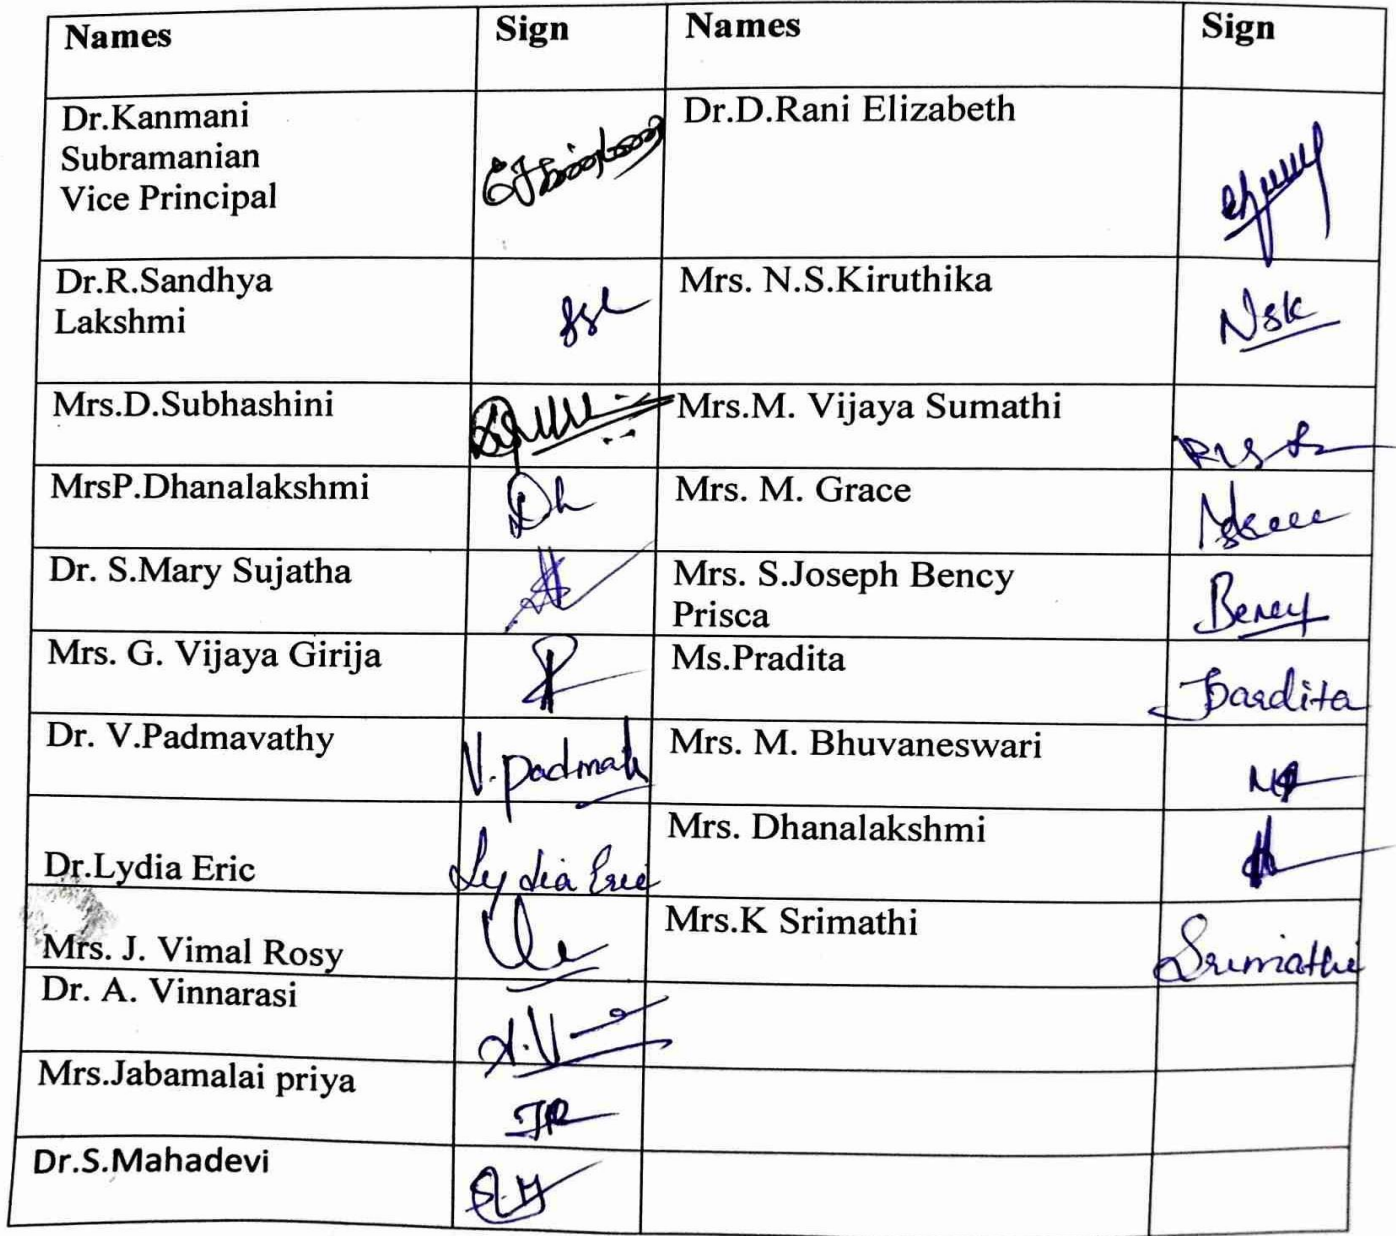 Names Sign Names Sign
Dr.Kanmani
Subramanian
Vice Principal
Dr.D.Rani Elizabeth
Dr.R.Sandhya
Lakshmi
Mrs. N.S.Kiruthika
Nsk
Mrs.D.Subhashini
Mrs.M. Vijaya Sumathi
MrsP.Dhanalakshmi
Dh
Mrs. M. Grace
Dr. S.Mary Sujatha
Mrs. S.Joseph Bency
Prisca
Bency
Mrs. G. Vijaya Girija
Ms.Pradita
Dr. V.Padmavathy
V.
Mrs. M. Bhuvaneswari
Dr.Lydia Eric
Lydia Eric
Mrs. Dhanalakshmi
Mrs. J. Vimal Rosy
Mrs.K Srimathi
Srimathi
Dr. A. Vinnarasi
A.V
Mrs.Jabamalai priya
Dr.S.Mahadevi